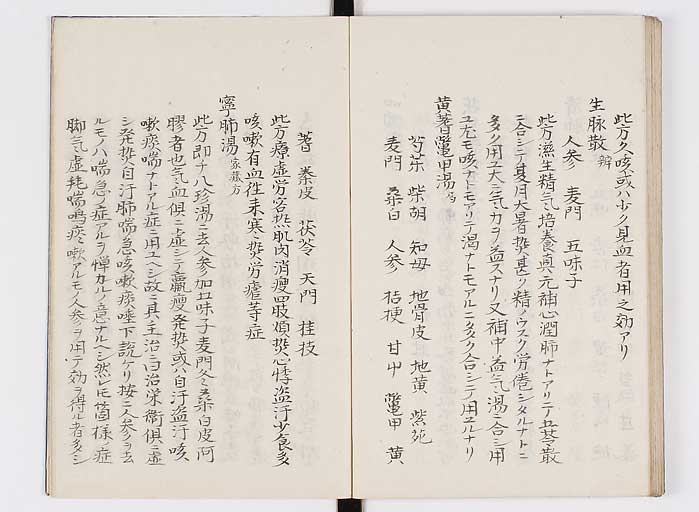 此方久咳或ハ少ク見血者用之効アリ
生脉散 辨
人参 麦門 五味子
此方滋生精氣培養真元補心潤肺ナトアリニテ五苓散
ニ合シテ夏月大暑熱甚ク精ノウスク労倦シタルナトニ
多ク用エ大ニ氣力ヲ益スナリ又補中益氣湯ニ合シ用
ユ尤モ咳ナトモアリテ渇ナトモアルニ多ク合シテ用ユルナリ
黄耆鼈甲湯
芍薬 柴胡 知母 地骨皮 地黄 紫苑
麦門 桑白 人参 桔梗 甘中 鼈甲 黄
蓍 秦皮 茯苓 天門 桂枝
此方療虚労客熱肌肉消瘦四肢煩熱心悸盗汗少食多
咳嗽有血往来寒熱労瘧等症
寧肺湯 家蔵方
此方即チ八珍湯ニ去人参加五味子麦門冬桑白皮阿
膠者也氣血倶ニ虚シテ羸瘦発熱或ハ自汗盗汗咳
嗽痰喘ナトアル症ニ用ユヘシ故ニ具主治ニ曰治栄衛倶ニ虚
シ発熱自汗肺喘急咳嗽痰唾下説ケリ按ニ人参ヲ去
ルモノハ喘急ノ症アルヲ憚カルノ意ナルヘシ然レ𪜈箇様ノ症
脚氣虚耗喘鳴痰嗽アルモノ人参ヲ用テ効ヲ得ル者多シ